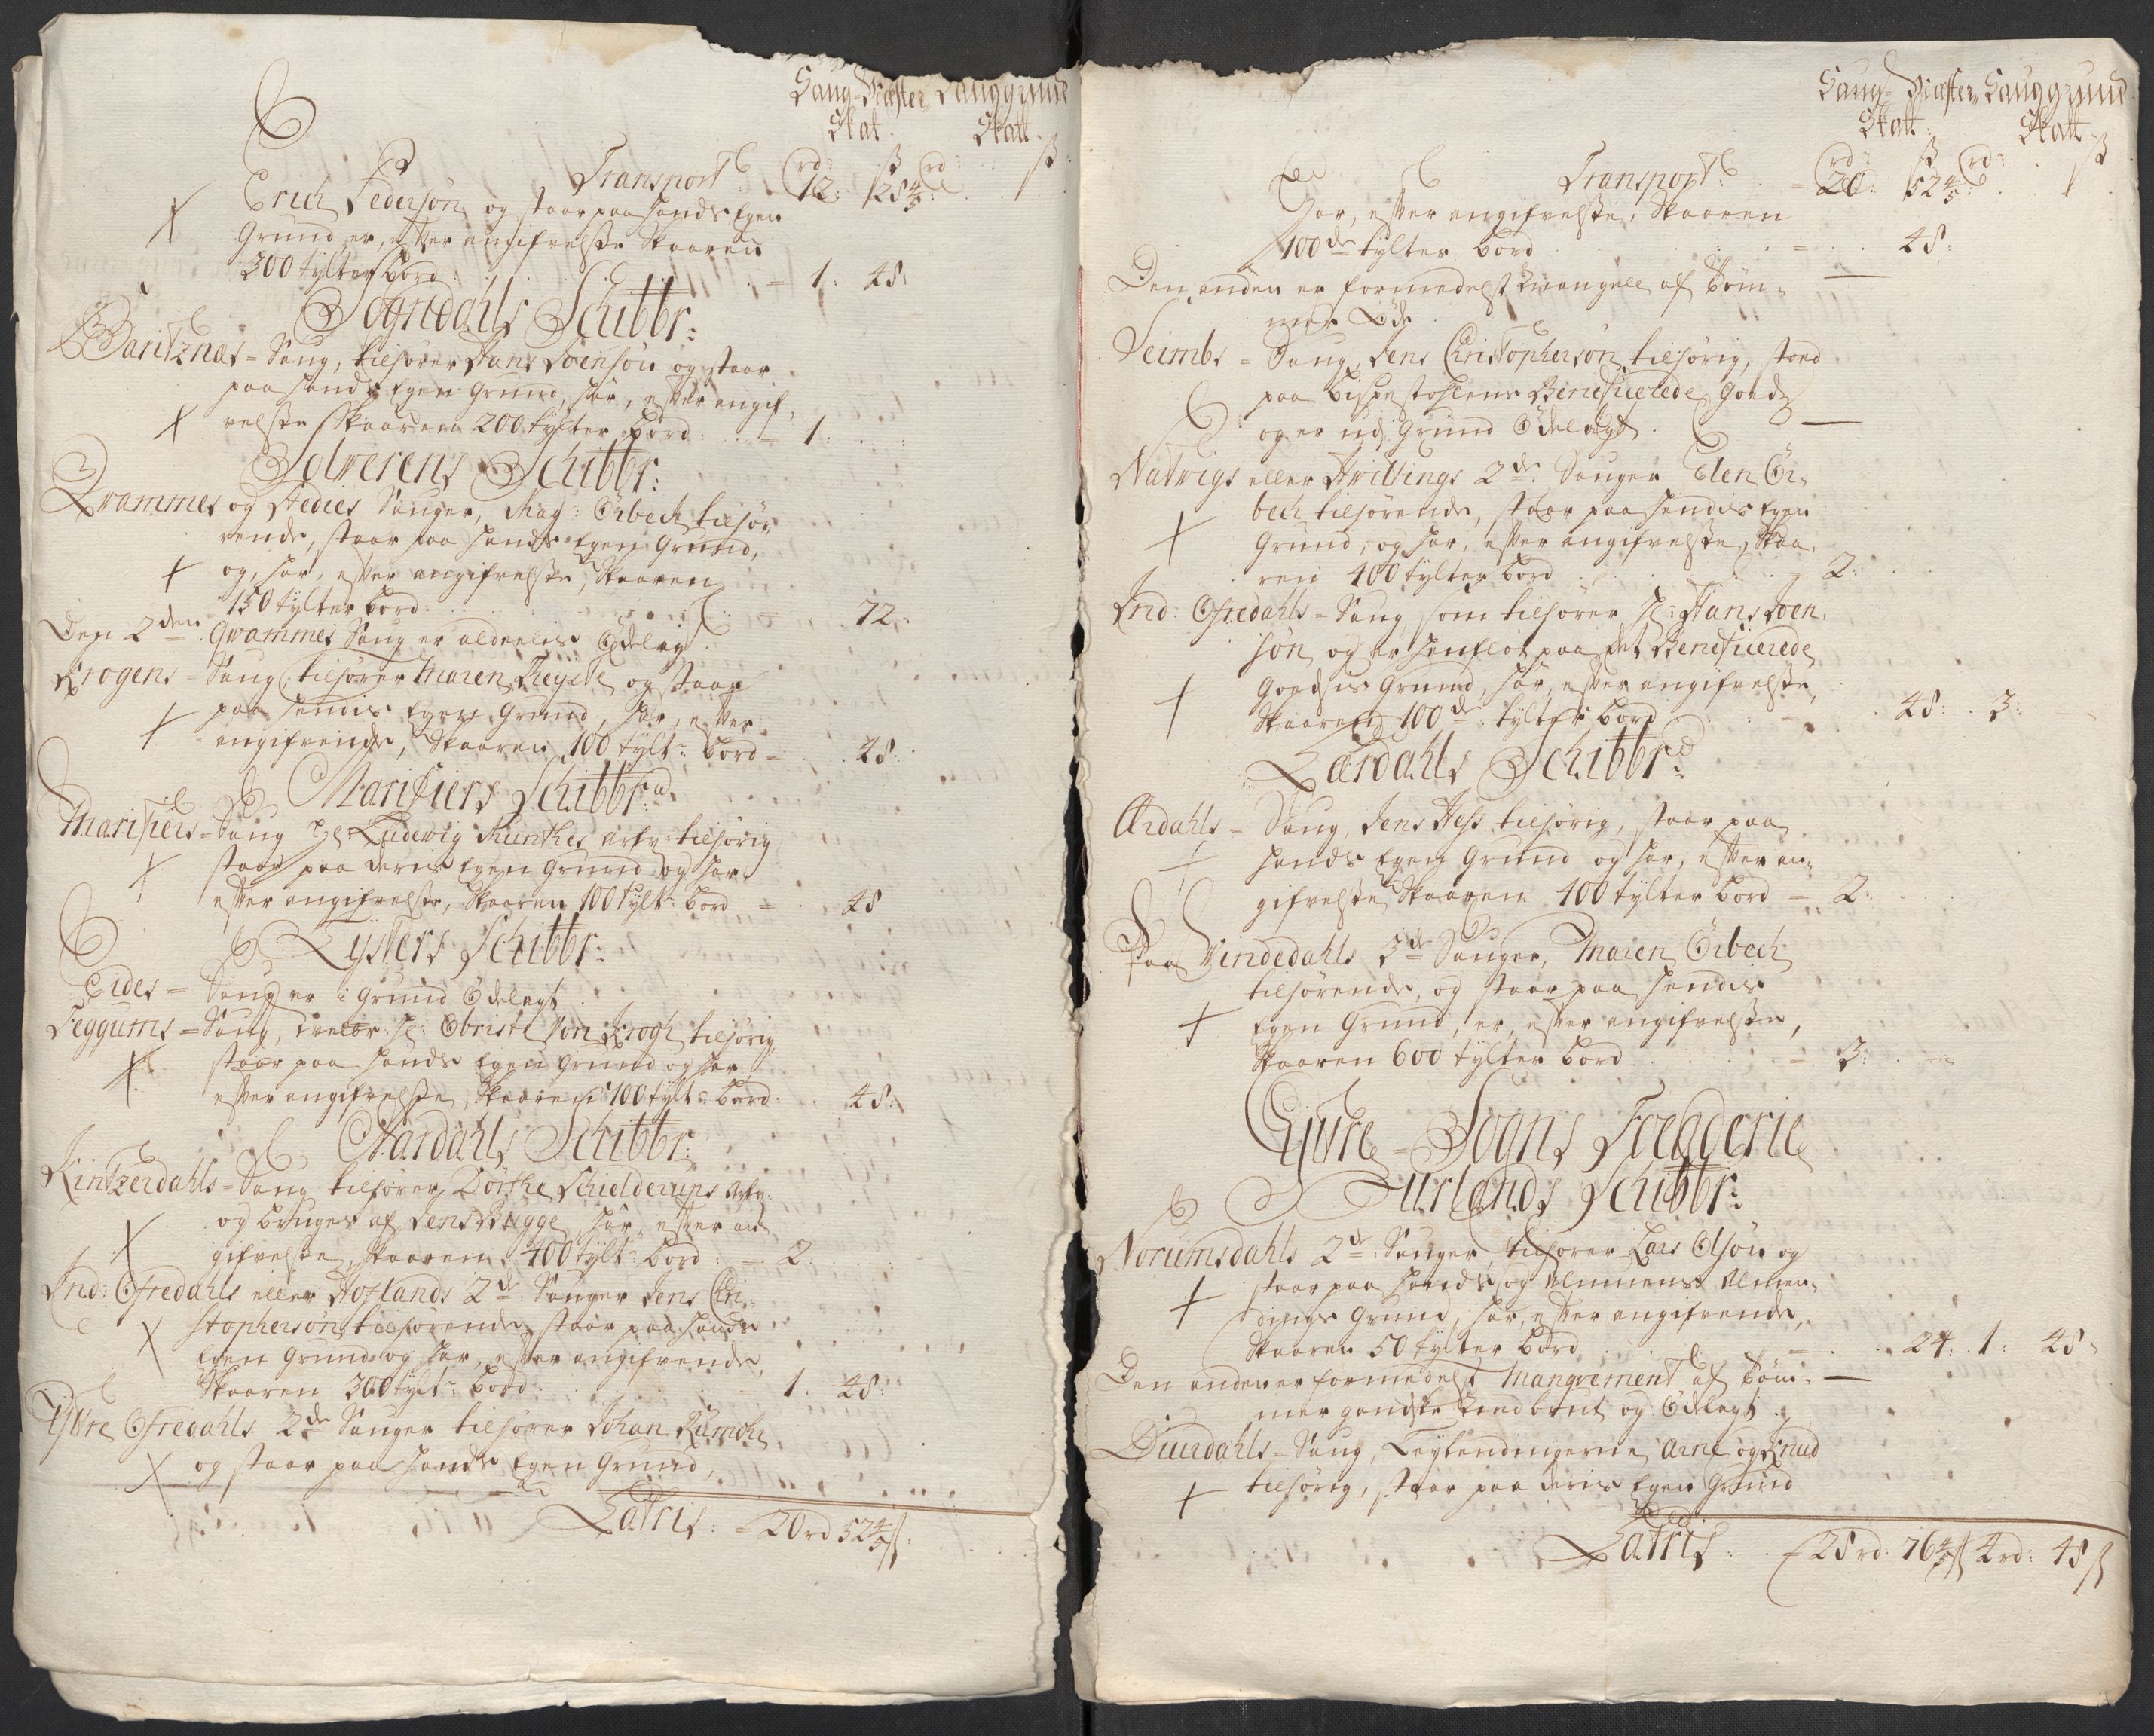 Saug-Mæster Sauggrund
Skat Skatt
Transport rd 12: ß 28 4/5 rd ß
Erich Pedersøn og staar paa hands Egen
Grund er, efter angifvelsße Skaaren
300 tylter bord: = 1: 48
Sogndahls Schibbr:
Baritznæs = Saug, tilhører Hans Joensøn og staar
paa hands Egen Grund, har, efter angif-
velsße Skaaren 200 tylter bord: = 1:
Solverens Schibbr:
Qvammes og Hedies Sauger, Mag: Örbech tilhø-
rende, staar paa hands Egen Grund,
og, har, efter angifvelsße, Skaaren
150 tylter bord: = 72:
Den 2den Qvammes Saug er aldeelis Ödelagt
Krogens = Saug, tilhører Maren og staar
paa hendis Egen Grund, har, efter
angifvende, Skaaren 100 tylt: bord = 48:
Marifiers Schibbr:
Marifiers = Saug Hr: Ludewig Munthes arfv: tilhørig
staar paa deris Egen Grund og har
efter angifvelsße, Skaaren 100 tylt: bord = 48
Lysters Schibbr:
Eides = Saug er i Grund Ödelagt
Feggums = Saug, Hr: Obriste von Krogh tilhørig,
staar paa hands Egen Grund og har
efter angifvelsße, Skaaren 100 tylt: bord: 48:
Aardahls Schibbr:
Kintzerdahls = Saug tilhører Dorthe Schielderups Arfv:
og bruges af Jens Bugge har, efter an
gifvelsße, Skaaren 400 tylt: bord: = 2:
Ind: Ofredahls eller Hoflands 2de: Sauger Jens Chri-
stophersøn tilhørende, staar paa hands
Egen Grund og har, efter angifvende,
Skaaren 300 tylt: bord: 1: 48:
Ytre Ofredahls 2de Sauger tilhører Johan
og staar paa hands Egen Grund,
Latris: = 20 rd 52 4/5 ß
Saug-Mæster Sauggrund
Skatt Skatt
Transport: = rd 20: ß 52 4/5 rd: ß
har, efter angifvelsße, Skaaren
100de tylter bord = 48:
Den anden er formedelst Mangell af Tøm-
mer Öde
Seimbs = Saug Jens Christophersøn tilhørig, stoed
paa bispestohlens Beneficerede Goeds
og er udj Grund Ödelagt
Natvigs eller Hvittings 2de: Sauger Elen Ör-
bech tilhørende, staar paa hendis Egen
Grund, og har, efter angifvelsße, Skaa-
ren 400 tylter bord = 2:
Ind: Ofredahls = Saug som tilhører Hr: Hans Joen-
søn og er paa det Beneficerede
Goedsis Grund, har, efter angifvelsße,
Skaaren 100de: tylter bord 48: 3:
Lærdahls Schibbrd:
Ardahls = Saug, Jens Hess tilhørig, staar paa
hands Egen Grund og har, efter an-
gifvelsße Skaaren 400 tylter bord = 2:
Paa Vindedahls 3de Sauger, Maren Örbech
tilhørende, og staar paa hendis
Egen Grund, er, efter angifvelsße,
Skaaren 600 tylter bord = 3:
Øfre = Sogns Foegderie
Urlands Schibbr:
Norumsdahls 2de: Sauger, tilhører Lars Olsøn og
staar paa hands, og Almuens Almen-
dings Grund, har, efter angifvende,
Skaaren 50 tylter bord = 24: 1: 48
Den anden er formedelst Manqvement af Tøm-
mer gandske og Ödelagt
Diurdahls = Saug, Arne og Knud
tilhørig, staar paa deris Egen Grund
Latris: 28 rd: 76 4/5 ß 4 rd: 48 ß